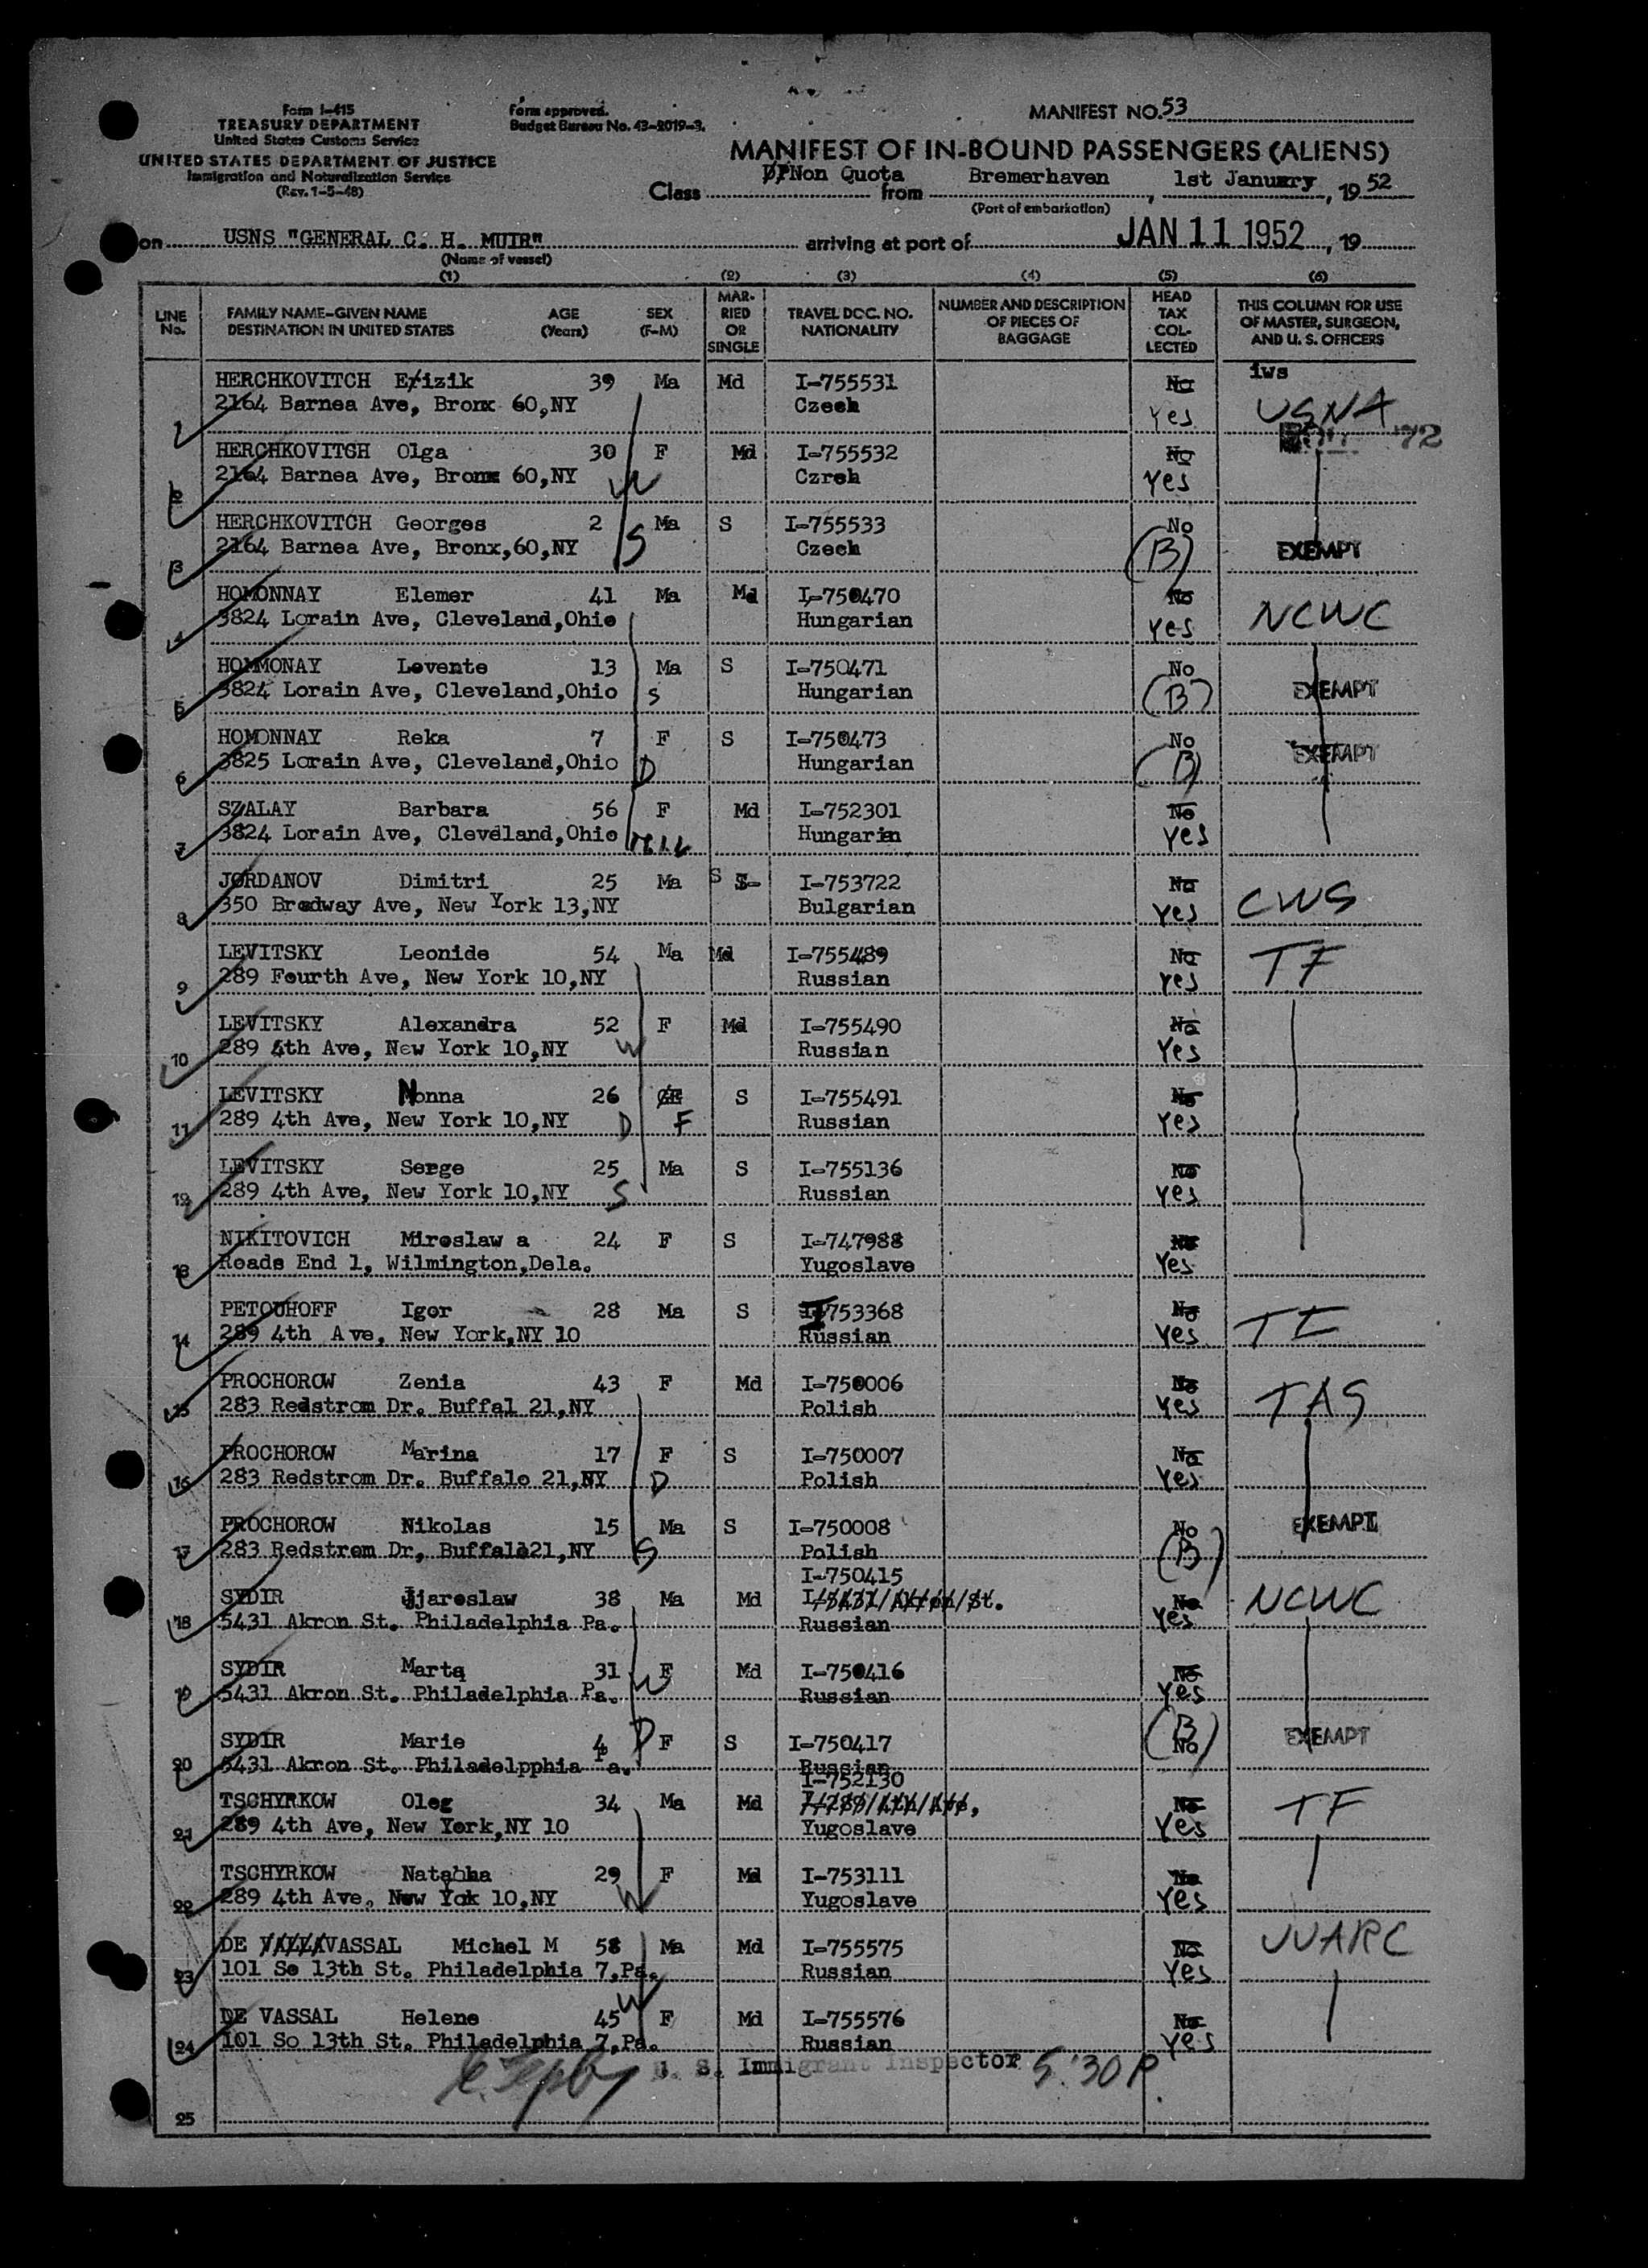 Form I-415
TREASURY DEPARTMENT
United States Customs Service
UNITED STATES DEPARTMENT OF JUSTICE
Immigration and Naturalization Service
(Rev. 1-5-48)
Form approved.
Budget Bureau No. 43-2019-3.
MANIFEST NO. 53
MANIFEST OF IN-BOUND PASSENGERS (ALIENS)
Class Non Quota from Bremerhaven, 1st January, 19 52
(Port of embarkation)
on USNS "GENERAL C. H. MUIR" arriving at port of JAN 11 1952, 19
(Name of vessel)
(1) (2) (3) (4) (5) (6)
LINE No. FAMILY NAME-GIVEN NAME DESTINATION IN UNITED STATES AGE (Years) SEX (F-M) MARRIED OR SINGLE TRAVEL DOC. NO. NATIONALITY NUMBER AND DESCRIPTION OF PIECES OF BAGGAGE HEAD TAX COLLECTED THIS COLUMN FOR USE OF MASTER, SURGEON, AND U. S. OFFICERS
iws
HERCHKOVITCH Erizik 39 Ma Md I-755531 No
1 2164 Barnea Ave, Bronx 60,NY Czech Yes USNA
HERCHKOVITCH Olga 30 F Md I-755532 No
2 2164 Barnea Ave, Bronx 60,NY W Czreh Yes
HERCHKOVITCH Georges 2 Ma S I-755533 No
3 2164 Barnea Ave, Bronx,60,NY S Czech (B) EXEMPT
HOMONNAY Elemer 41 Ma Md I-750470 No
4 3824 Lorain Ave, Cleveland,Ohio Hungarian Yes NCWC
HOMMONAY Levente 13 Ma S I-750471 No
5 3824 Lorain Ave, Cleveland,Ohio S Hungarian (B) EXEMPT
HOMONNAY Reka 7 F S I-750473 No
6 3825 Lorain Ave, Cleveland,Ohio D Hungarian (B) EXEMPT
SZALAY Barbara 56 F Md I-752301 No
7 3824 Lorain Ave, Cleveland,Ohio Hungarin Yes
JORDANOV Dimitri 25 Ma S I-753722 No
8 350 Brodway Ave, New York 13,NY Bulgarian Yes CWS
LEVITSKY Leonide 54 Ma Md I-755489 No
9 289 Fourth Ave, New York 10,NY Russian Yes TF
LEVITSKY Alexandra 52 F Md I-755490 No
10 289 4th Ave, New York 10,NY W Russian Yes
LEVITSKY Nonna 26 S I-755491 No
11 289 4th Ave, New York 10,NY D F Russian Yes
LEVITSKY Serge 25 Ma S I-755136 No
12 289 4th Ave, New York 10,NY S Russian Yes
NIKITOVICH Miroslaw a 24 F S I-747988 No
13 Roads End 1, Wilmington,Dela. Yugoslave Yes
PETOUHOFF Igor 28 Ma S I-753368 No
14 289 4th Ave, New York,NY 10 Russian Yes TF
PROCHOROW Zenia 43 F Md I-750006 No
15 283 Redstrom Dr. Buffal 21,NY Polish Yes TAS
PROCHOROW Marina 17 F S I-750007 No
16 283 Redstrom Dr. Buffalo 21,NY D Polish Yes
PROCHOROW Nikolas 15 Ma S I-750008 No EXEMPT
17 283 Redstrom Dr, Buffalo21,NY S Polish (B)
I-750415
SYDIR Jjaroslaw 38 Ma Md No NCWC
18 5431 Akron St. Philadelphia Pa. Russian Yes
SYDIR Marta 31 F Md I-750416 No
19 5431 Akron St. Philadelphia Pa. W Russian Yes
SYDIR Marie 4 D F S I-750417 (B No) EXEMPT
20 5431 Akron St. Philadelpphia Pa. Russian
I-752130
TSCHYRKOW Oleg 34 Ma Md No TF
21 289 4th Ave, New York,NY 10 Yugoslave Yes
TSCHYRKOW Natahha 29 F Md I-753111 No
22 289 4th Ave. New Yok 10,NY W Yugoslave Yes
DE VASSAL Michel M 58 Ma Md I-755575 No
23 101 So 13th St. Philadelphia 7,Pa. Russian Yes
DE VASSAL Helene 45 W F Md I-755576 No
24 101 So 13th St. Philadelphia 7,Pa. Russian Yes
U. S. Immigrant Inspector 5:30 P.
25